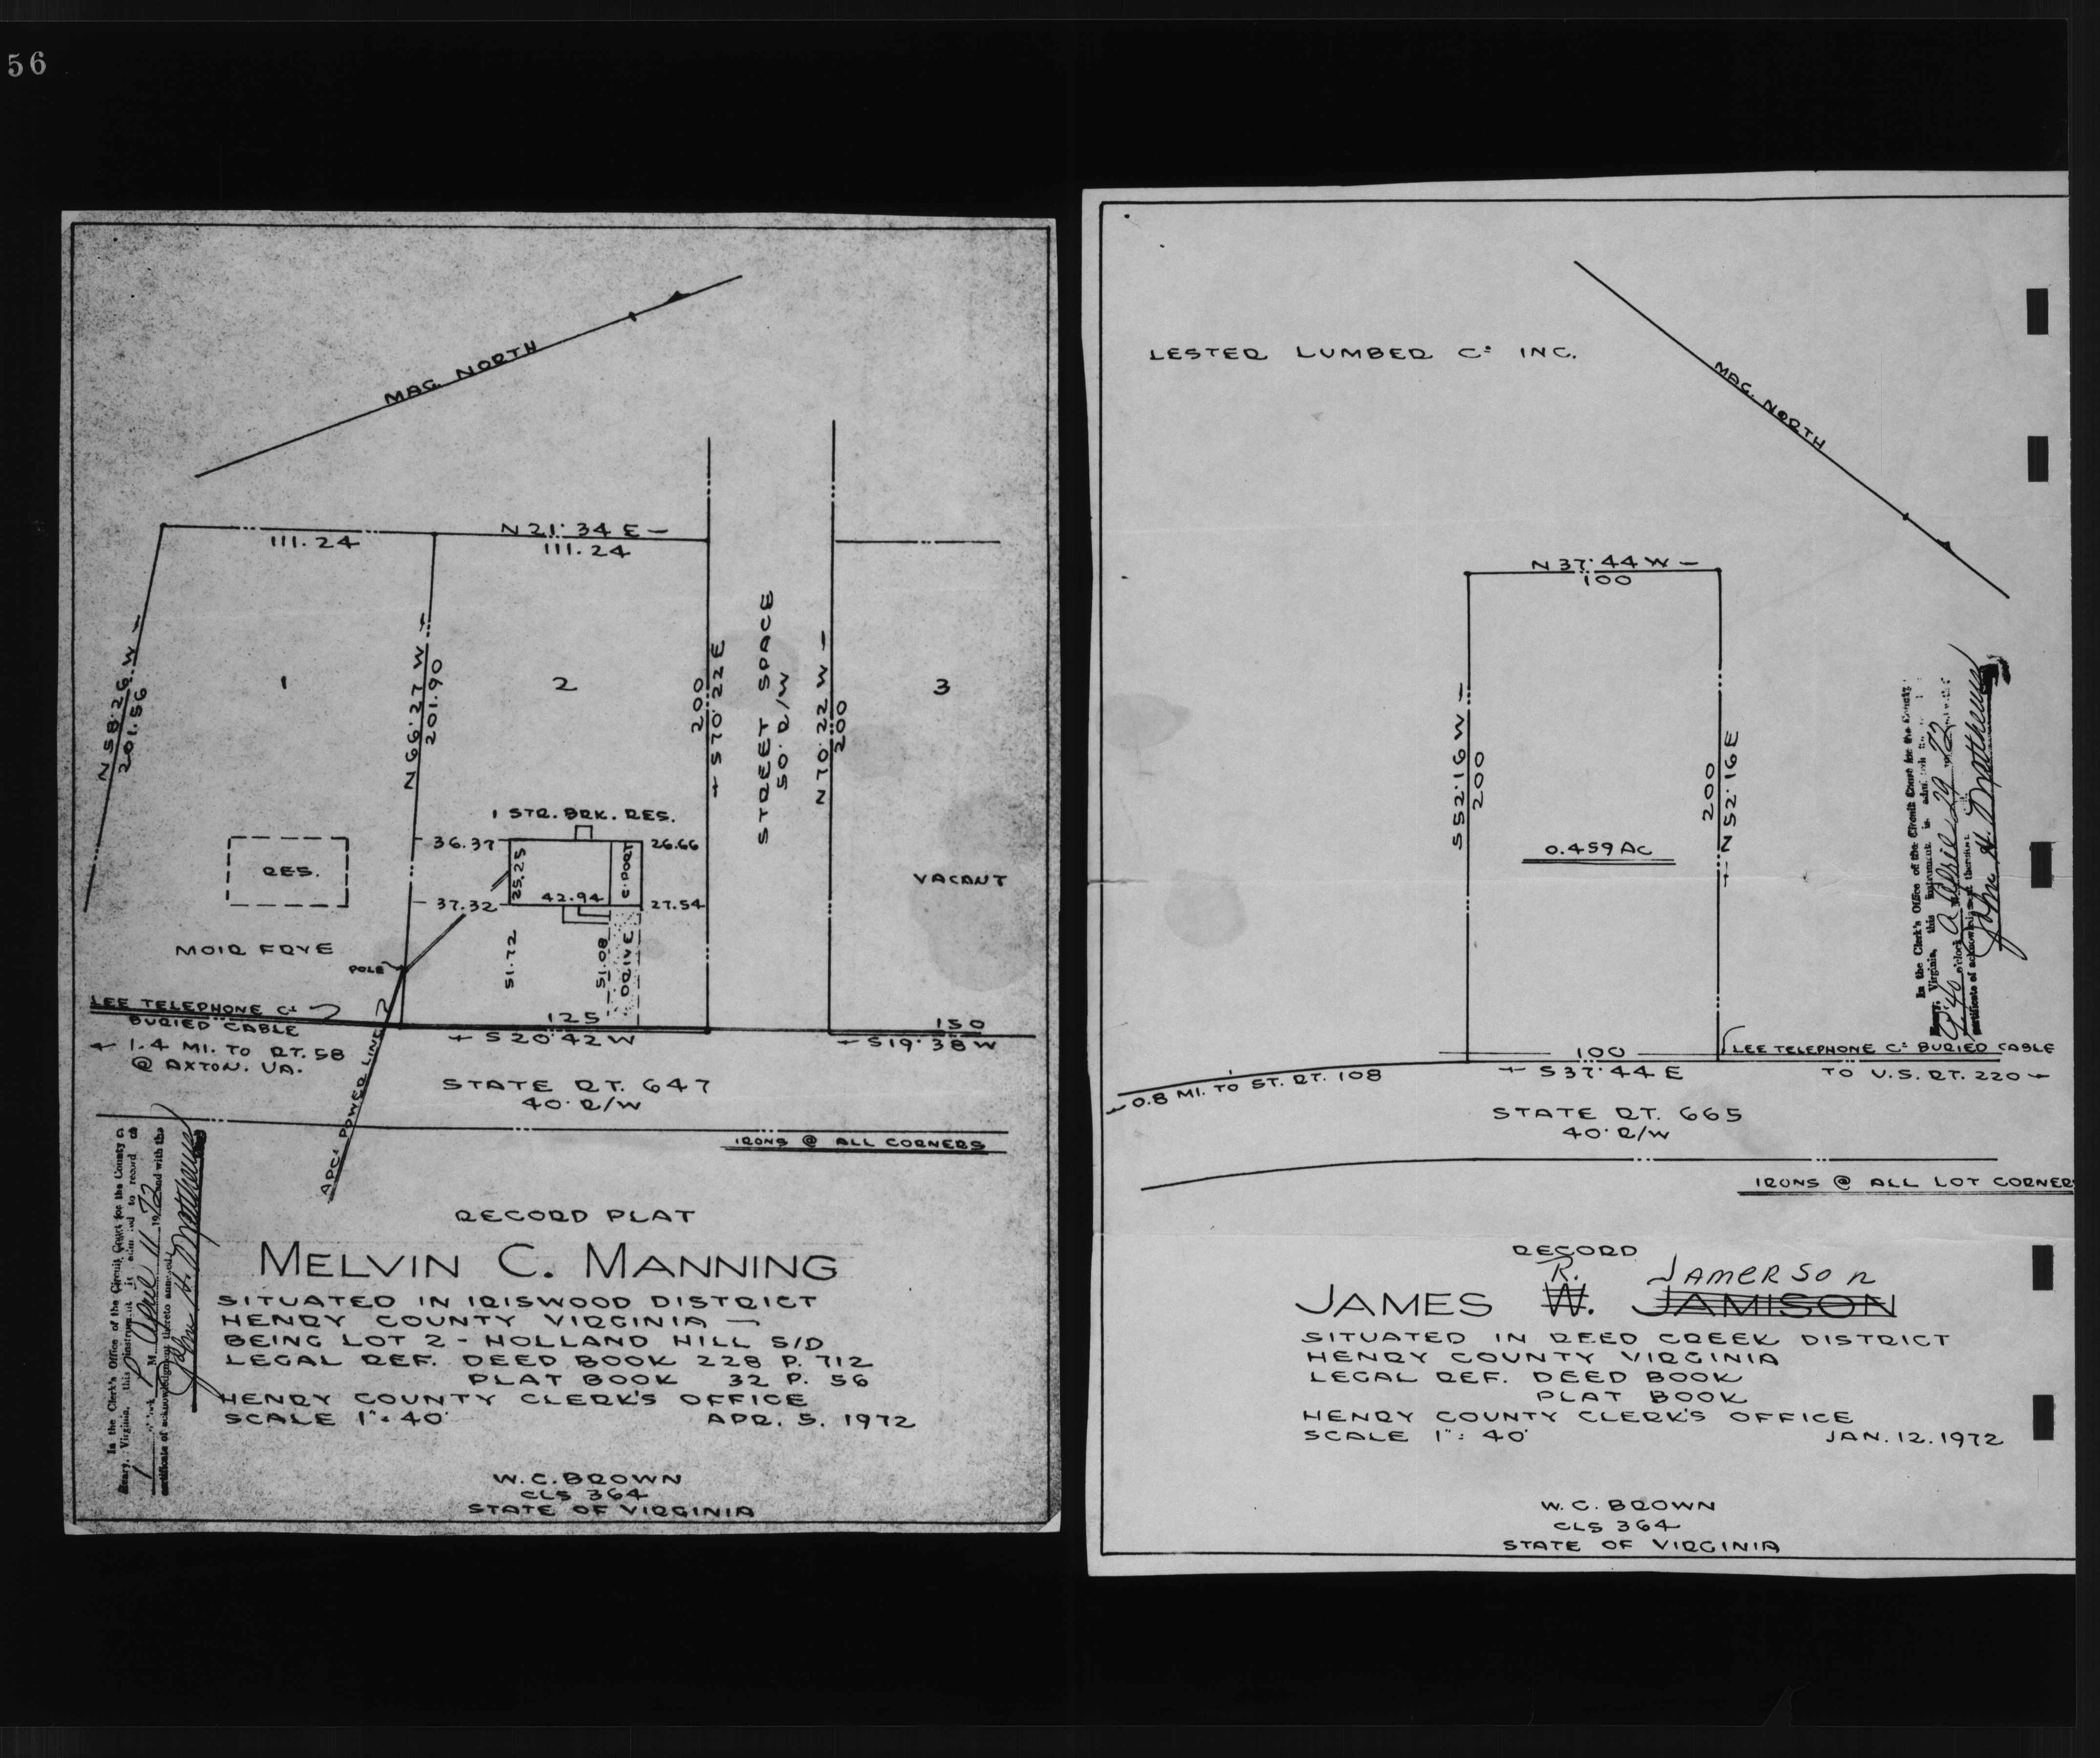 56
MAG. NORTH
N 21° 34 E
111.24
111.24
N 58° 26 W
201.56
N 66° 27 W
201.90
200
S 70° 22 E
STREET SPACE
50' R/W
N 70° 22 W
200
1
2
3
1 STR. BRK. RES.
36.37
26.66
25.25
C-PORT
RES.
42.94
37.32
27.54
VACANT
MOIR FRYE
POLE
51.72
51.08
DRIVE
LEE TELEPHONE Cº
BURIED CABLE
125
150
S 20° 42 W
S 19° 38 W
1.4 MI. TO RT. 58
@ AXTON. VA.
APCº POWER LINE
STATE RT. 647
40' R/W
IRONS @ ALL CORNERS
In the Clerk's Office of the Circuit Court for the County of
Henry, Virginia, this instrument is admitted to record at
P M April 11 1972 and with the
certificate of acknowledgment thereto annexed
John H. Matthews
RECORD PLAT
MELVIN C. MANNING
SITUATED IN IRISWOOD DISTRICT
HENRY COUNTY VIRGINIA —
BEING LOT 2 - HOLLAND HILL S/D
LEGAL REF. DEED BOOK 228 P. 712
PLAT BOOK 32 P. 56
HENRY COUNTY CLERK'S OFFICE
SCALE 1": 40' APR. 5. 1972
W. C. BROWN
CLS 364
STATE OF VIRGINIA
LESTER LUMBER Cº INC.
MAG. NORTH
N 37° 44 W
100
S 52° 16 W
200
200
N 52° 16 E
0.459 AC
100
LEE TELEPHONE Cº BURIED CABLE
0.8 MI. TO ST. RT. 108
S 37° 44 E
TO U.S. RT. 220
STATE RT. 665
40' R/W
IRONS @ ALL LOT CORNERS
In the Clerk's Office of the Circuit Court for the County
Henry, Virginia, this instrument is
o'clock A April 29 1972
certificate of acknowledgment thereto
John H. Matthews
RECORD
R. JAMERSON
JAMES W. JAMISON
SITUATED IN REED CREEK DISTRICT
HENRY COUNTY VIRGINIA
LEGAL REF. DEED BOOK
PLAT BOOK
HENRY COUNTY CLERK'S OFFICE
SCALE 1": 40' JAN. 12. 1972
W. C. BROWN
CLS 364
STATE OF VIRGINIA